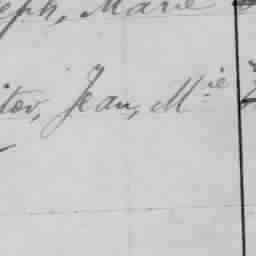 eph, Marie
itov, Jean, Mie